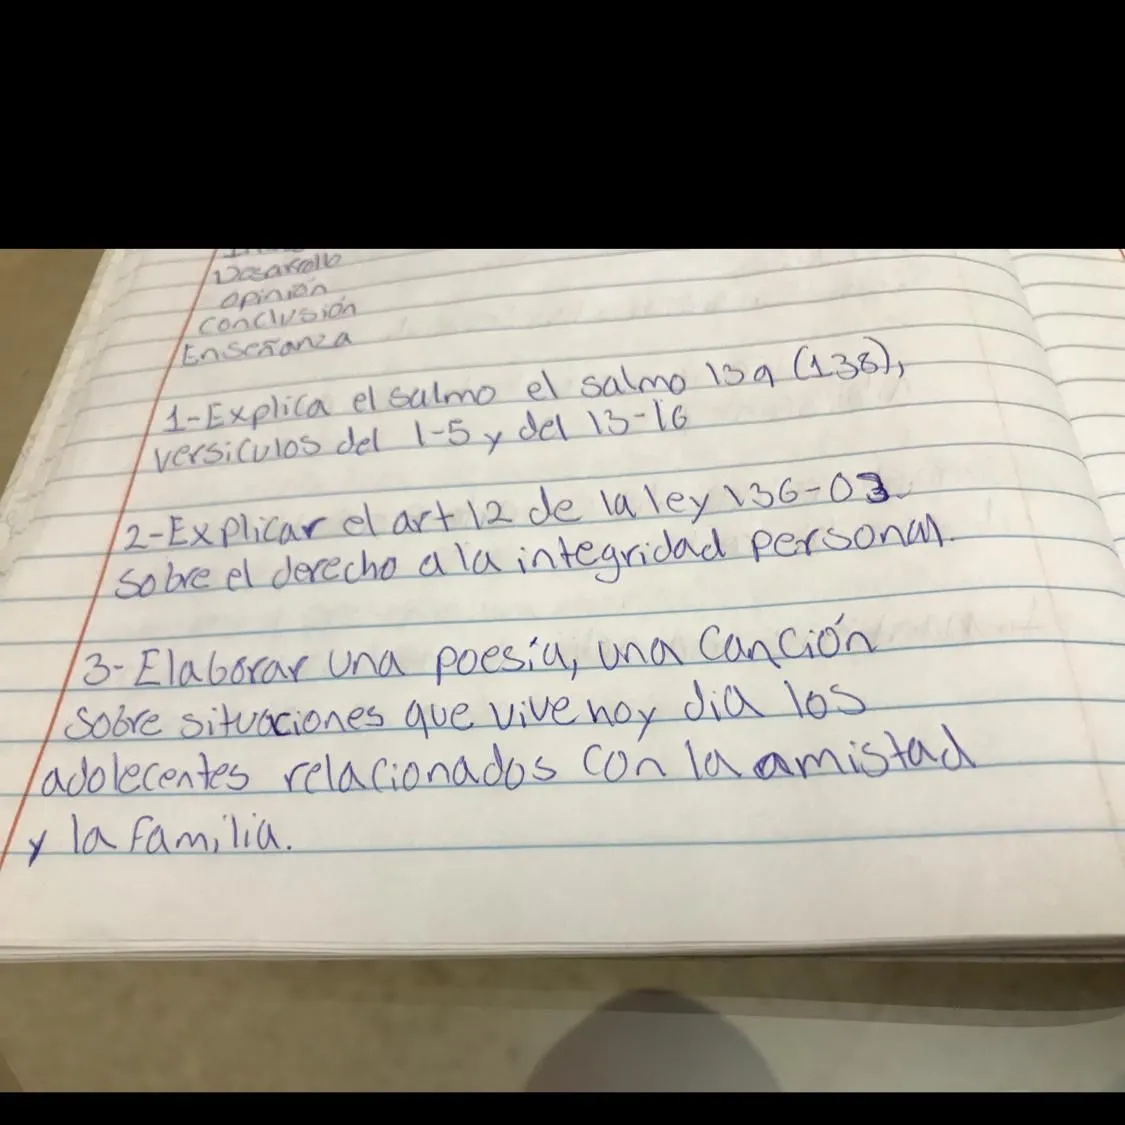 Desarrollo
opinión
conclusión
Enseñanza
1-Explica el salmo el salmo 139 (138),
versiculos del 1-5 y del 13-16
2-Explicar el art 12 de la ley 136-03
sobre el derecho a la integridad personal.
3-Elaborar una poesía, una canción
sobre situaciones que vive hoy dia los
adolecentes relacionados con la amistad
y la familia.